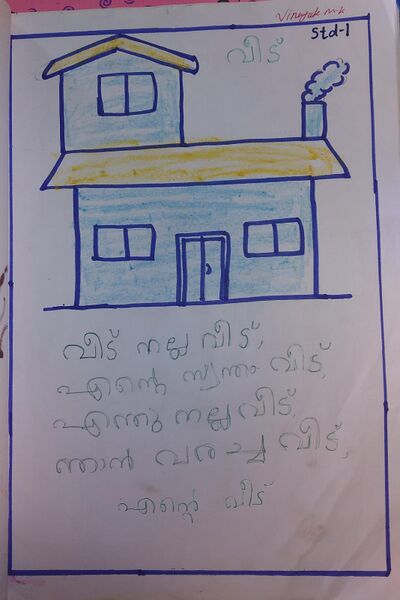 Vinayak M.K
Std-1
വീട്
വീട് നല്ല വീട്,
എൻ്റെ സ്വന്തം വീട്,
എന്തു നല്ല വീട്,
ഞാൻ വരച്ച വീട്,
എൻ്റെ വീട്